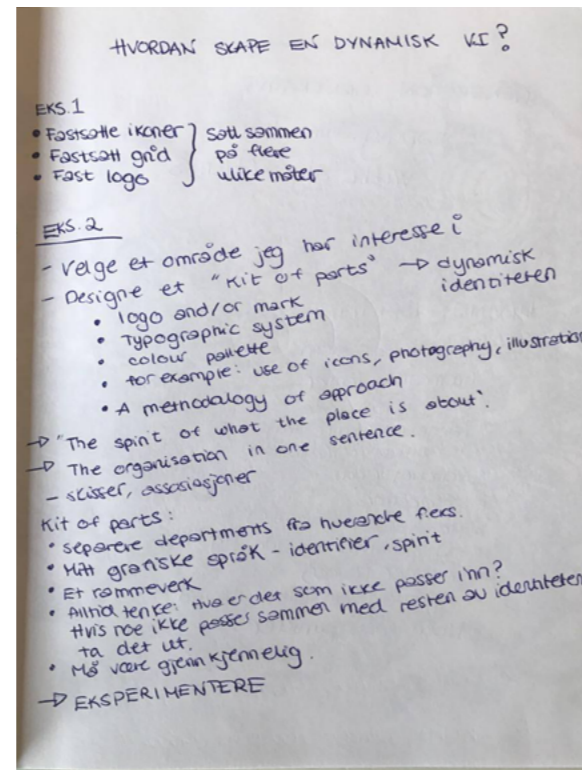 HVORDAN SKAPE EN DYNAMISK KI?
EKS.1
• Fastsatte ikoner } satt sammen
• Fastsatt grid } på flere
• Fast logo } ulike måter
EKS.2
- Velge et område jeg har interesse i
- Designe et "Kit of parts" → dynamisk
identiteten
• logo and/or mark
• Typographic system
• colour pallette
• for example: use of icons, photography, illustration
• A methodology of approach
→ "The spirit of what the place is about".
→ The organisation in one sentence.
- skisser, assosiasjoner
Kit of parts:
• separere departments fra hverandre f.eks.
• Mitt grafiske språk - identifier, spirit
• Et rammeverk
• Alltid tenke: Hva er det som ikke passer inn?
Hvis noe ikke passes sammen med resten av identiteten
ta det ut.
• Må være gjennkjennelig.
→ EKSPERIMENTERE